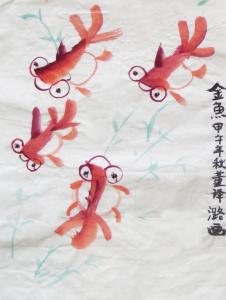 金魚甲午年秋董譯潞画